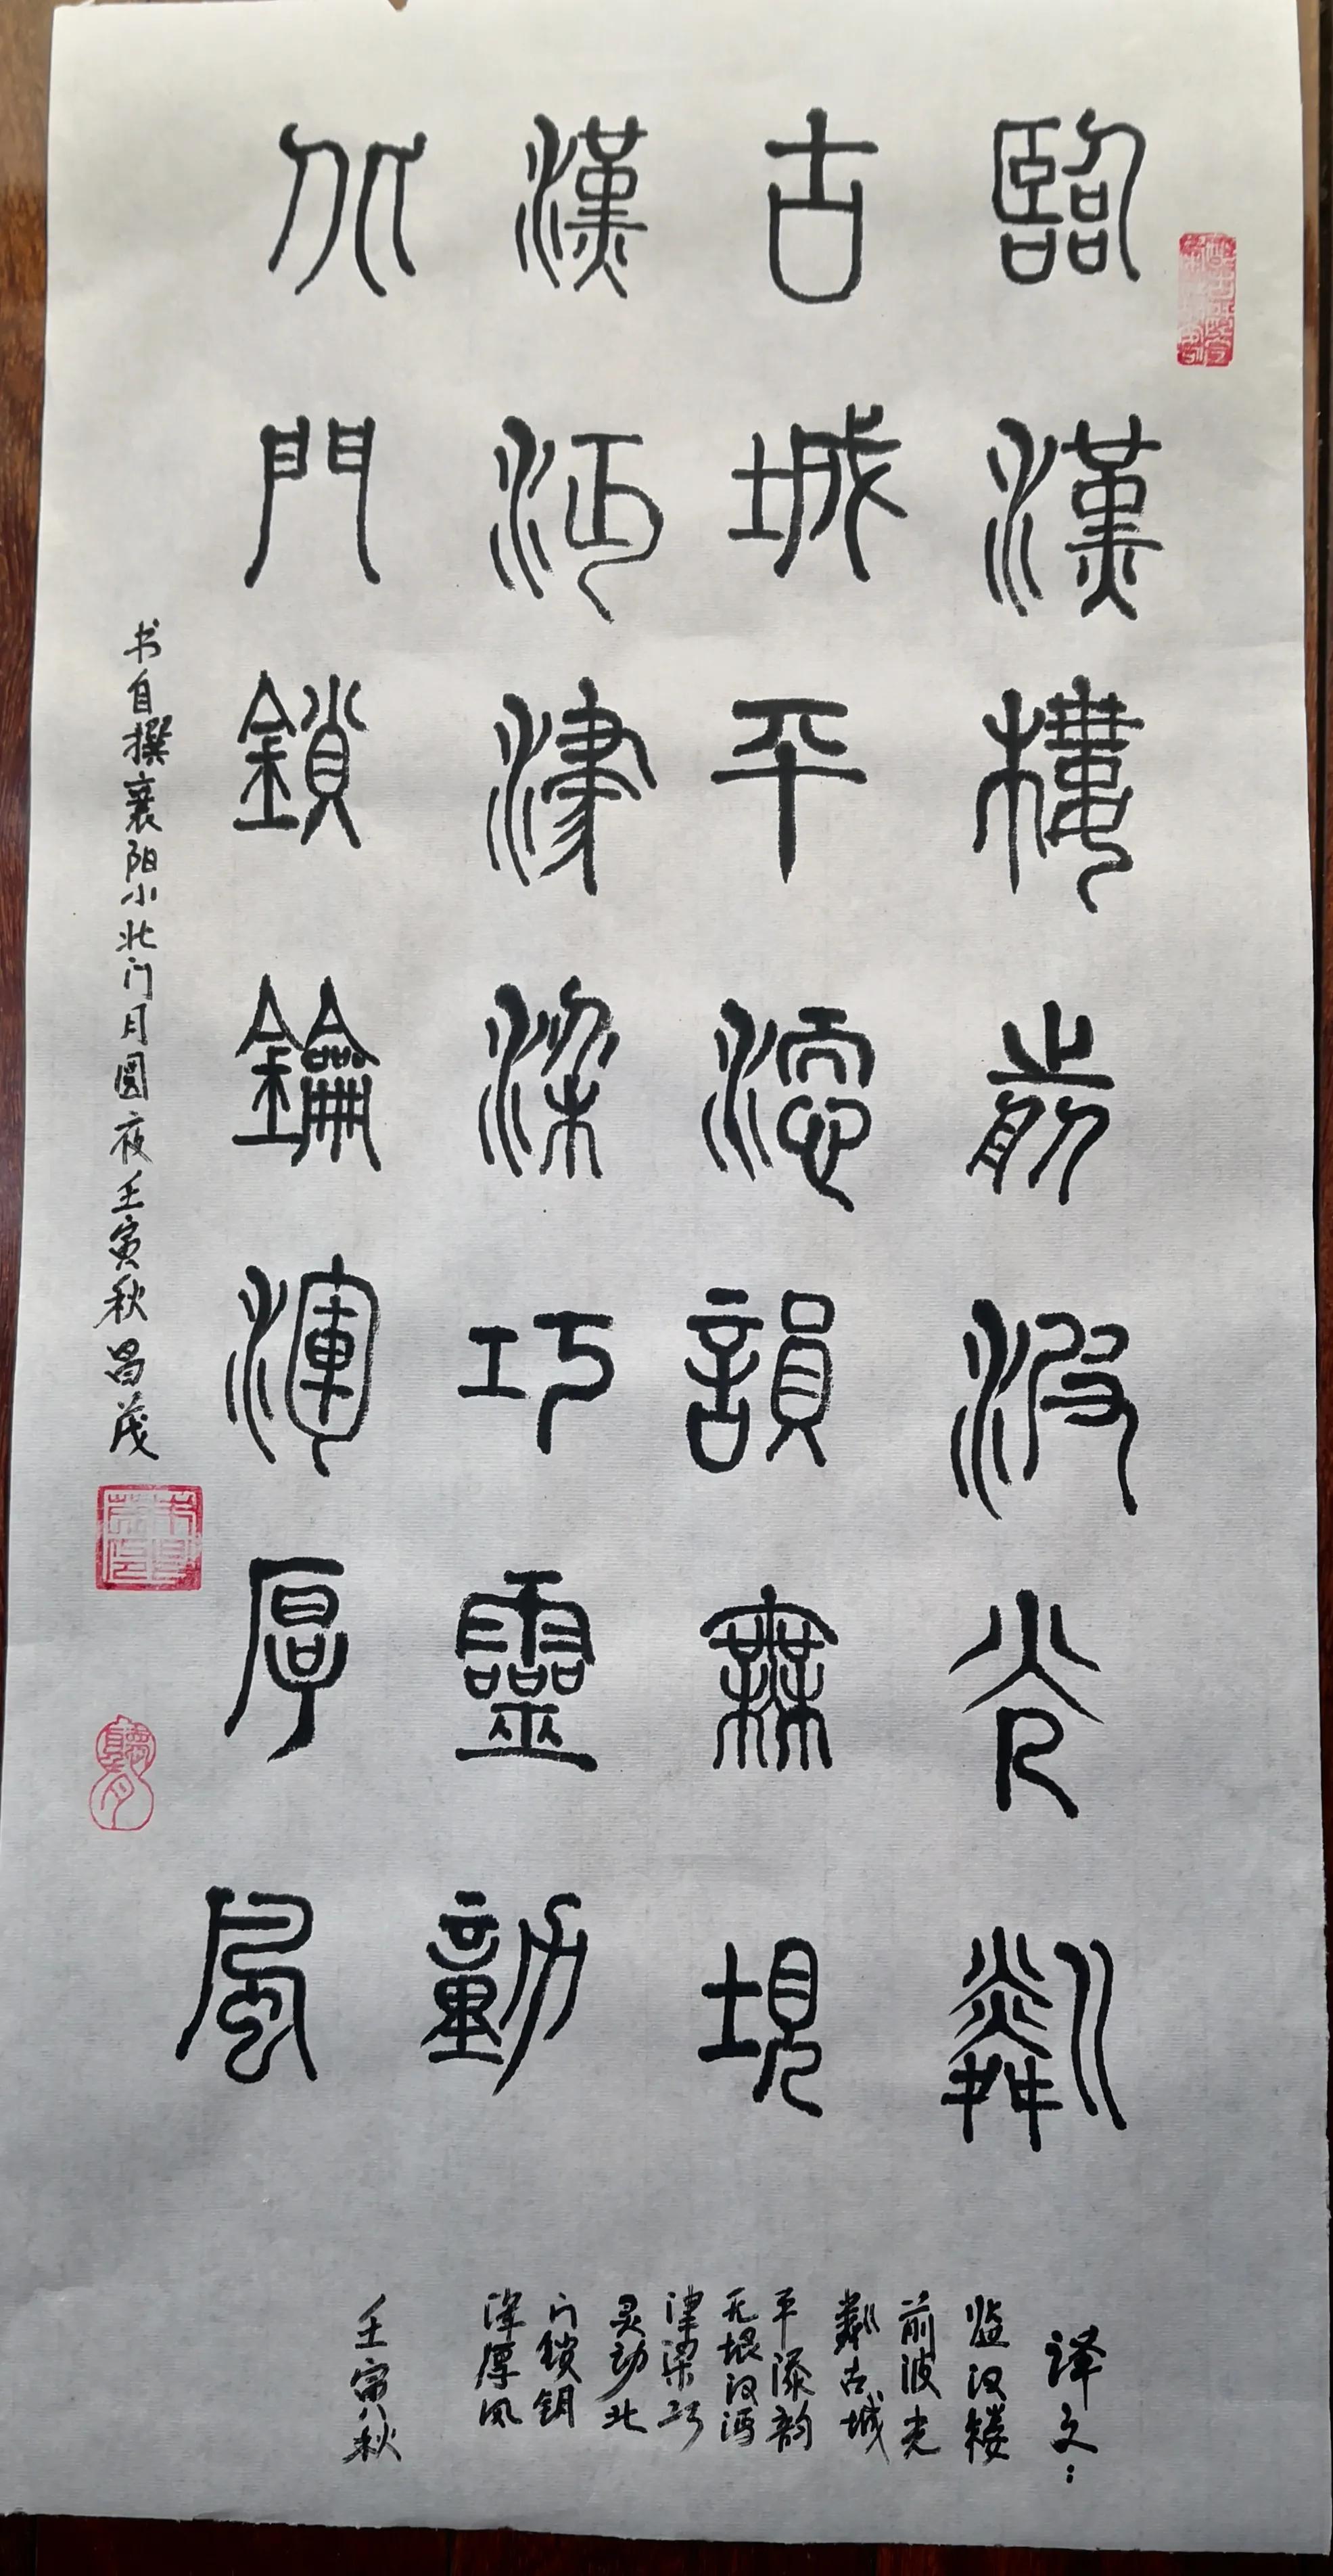 臨漢樓前波光粼
古城平添韻無垠
漢沔津梁巧靈動
北門鎖鑰渾厚風
书自撰襄阳小北门月圆夜壬寅秋昌茂
译文：
临汉楼
前波光
粼古城
平添韵
无垠汉沔
津梁巧
灵动北
门锁钥
浑厚风
壬寅秋